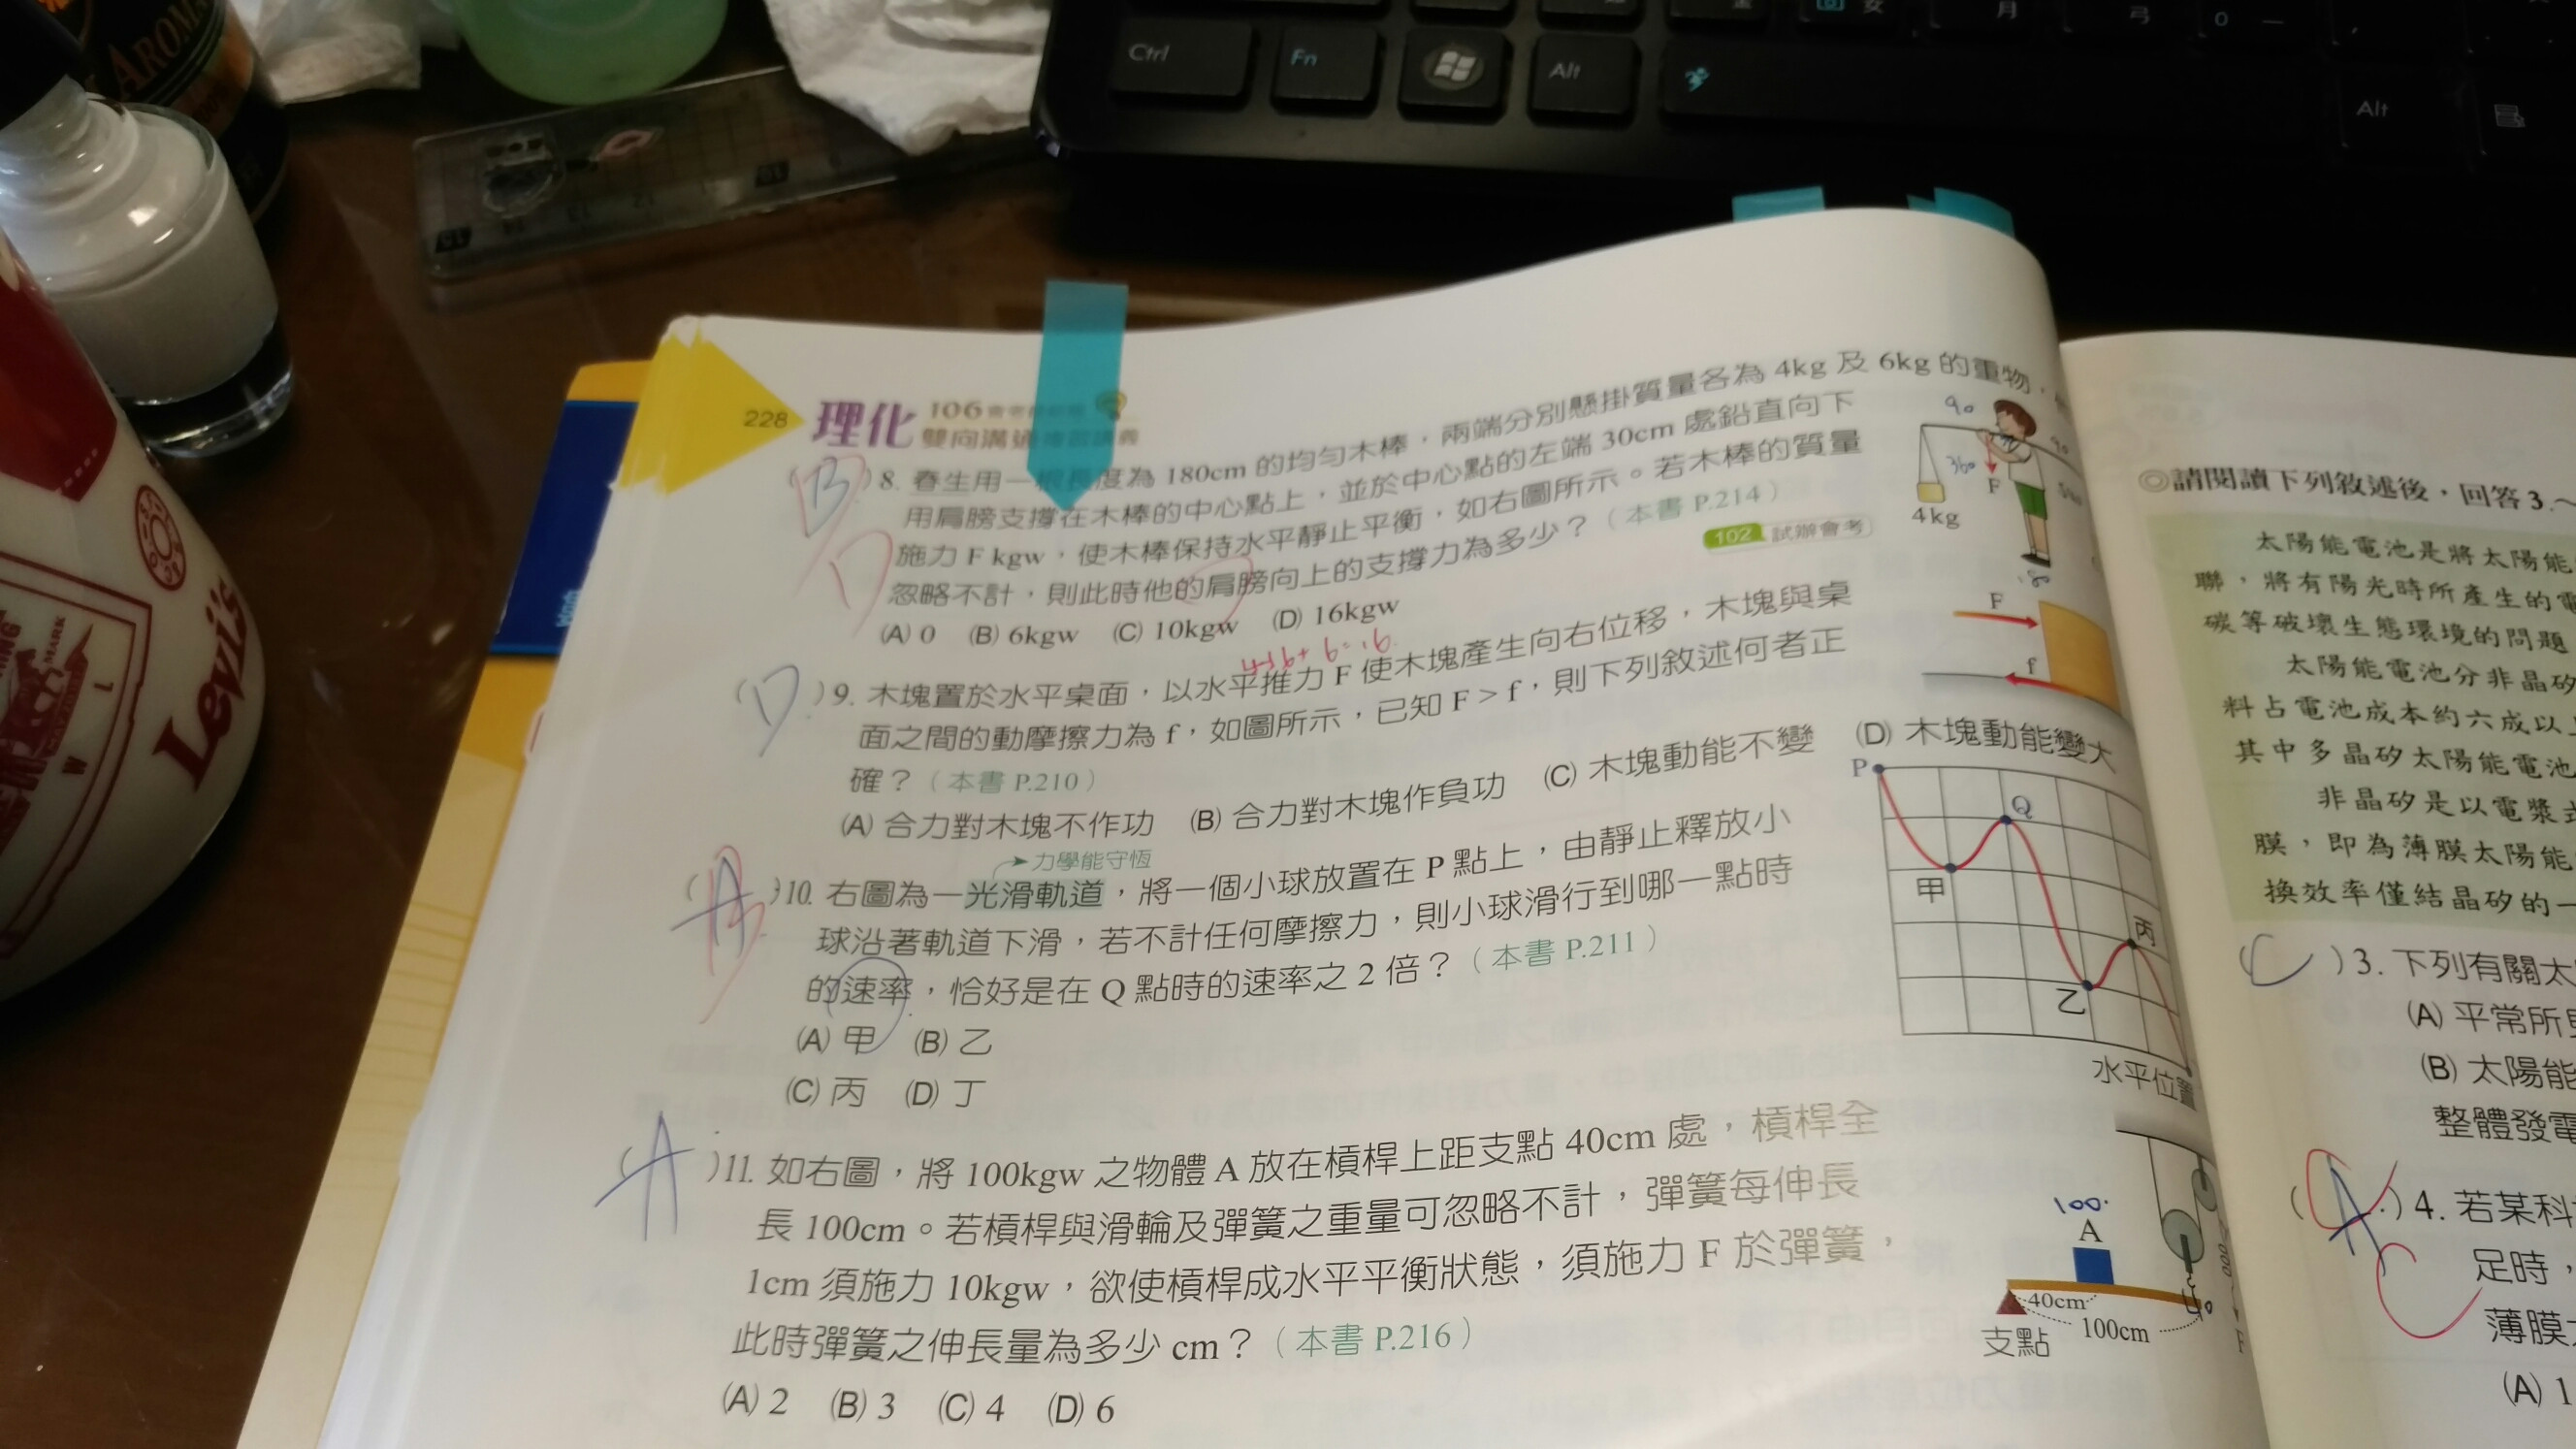 AROM
Ctrl
Fn
Alt
安
月
弓
Alt
Levi's
MARK
L
W
228
理化
106
雙向溝通複習講義
(B)8. 春生用一根長度為 180cm 的均勻木棒，兩端分別懸掛質量各為 4kg 及 6kg 的重物，
用肩膀支撐在木棒的中心點上，並於中心點的左端 30cm 處鉛直向下
施力 F kgw，使木棒保持水平靜止平衡，如右圖所示。若木棒的質量
忽略不計，則此時他的肩膀向上的支撐力為多少？（本書 P.214）
102 試辦會考
(A) 0 (B) 6kgw (C) 10kgw (D) 16kgw
D
4+6+6=16
90
90
360
F
4kg
(D)9. 木塊置於水平桌面，以水平推力 F 使木塊產生向右位移，木塊與桌
面之間的動摩擦力為 f，如圖所示，已知 F > f，則下列敘述何者正
確？（本書 P.210）
(A) 合力對木塊不作功 (B) 合力對木塊作負功 (C) 木塊動能不變 (D) 木塊動能變大
F
f
力學能守恆
(A)10. 右圖為一光滑軌道，將一個小球放置在 P 點上，由靜止釋放小
球沿著軌道下滑，若不計任何摩擦力，則小球滑行到哪一點時
的速率，恰好是在 Q 點時的速率之 2 倍？（本書 P.211）
(A) 甲 (B) 乙
(C) 丙 (D) 丁
B
P
Q
甲
丙
乙
水平位置
(A)11. 如右圖，將 100kgw 之物體 A 放在槓桿上距支點 40cm 處，槓桿全
長 100cm。若槓桿與滑輪及彈簧之重量可忽略不計，彈簧每伸長
1cm 須施力 10kgw，欲使槓桿成水平平衡狀態，須施力 F 於彈簧，
此時彈簧之伸長量為多少 cm？（本書 P.216）
(A) 2 (B) 3 (C) 4 (D) 6
100
A
40cm
100cm
40
支點
F
◎請閱讀下列敘述後，回答 3.～
太陽能電池是將太陽能
聯，將有陽光時所產生的電
碳等破壞生態環境的問題
太陽能電池分非晶矽
料占電池成本約六成以上
其中多晶矽太陽能電池
非晶矽是以電漿式
膜，即為薄膜太陽能
換效率僅結晶矽的一
(C)3. 下列有關太
(A) 平常所見
(B) 太陽能
整體發電
(A)4. 若某科
足時，
薄膜太
(A) 1
C